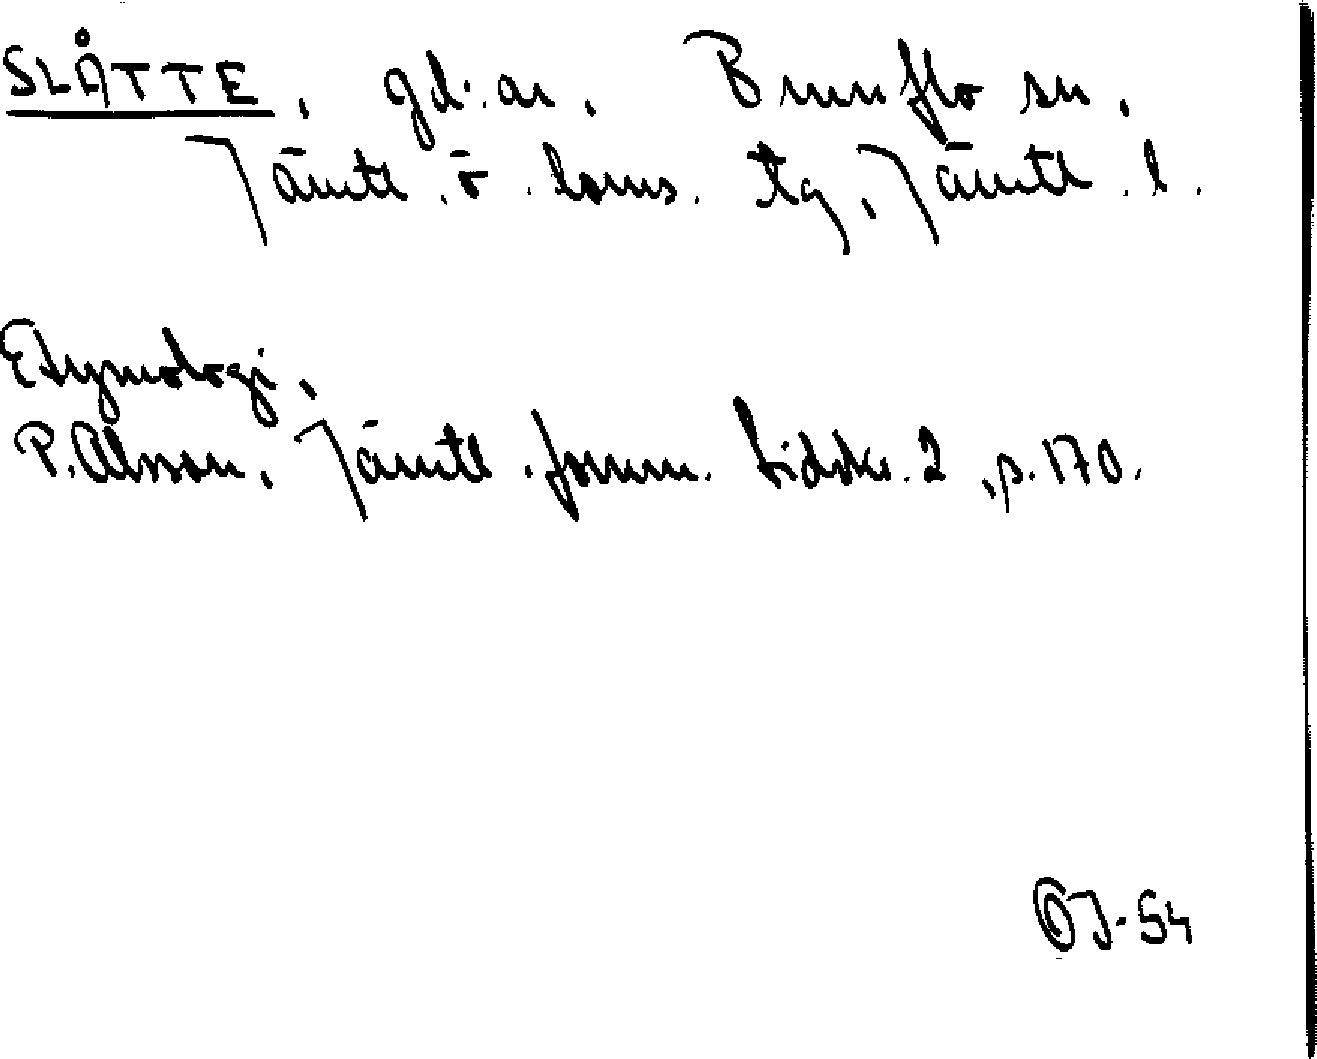 SLÅTTE, gd:ar, Brunflo sn,
Jämtl. ö. doms. tg, Jämtl. l.
Etymologi,
P. Olsson, Jämtl. fornm. tidskr. 2, p. 170.
OJ-54